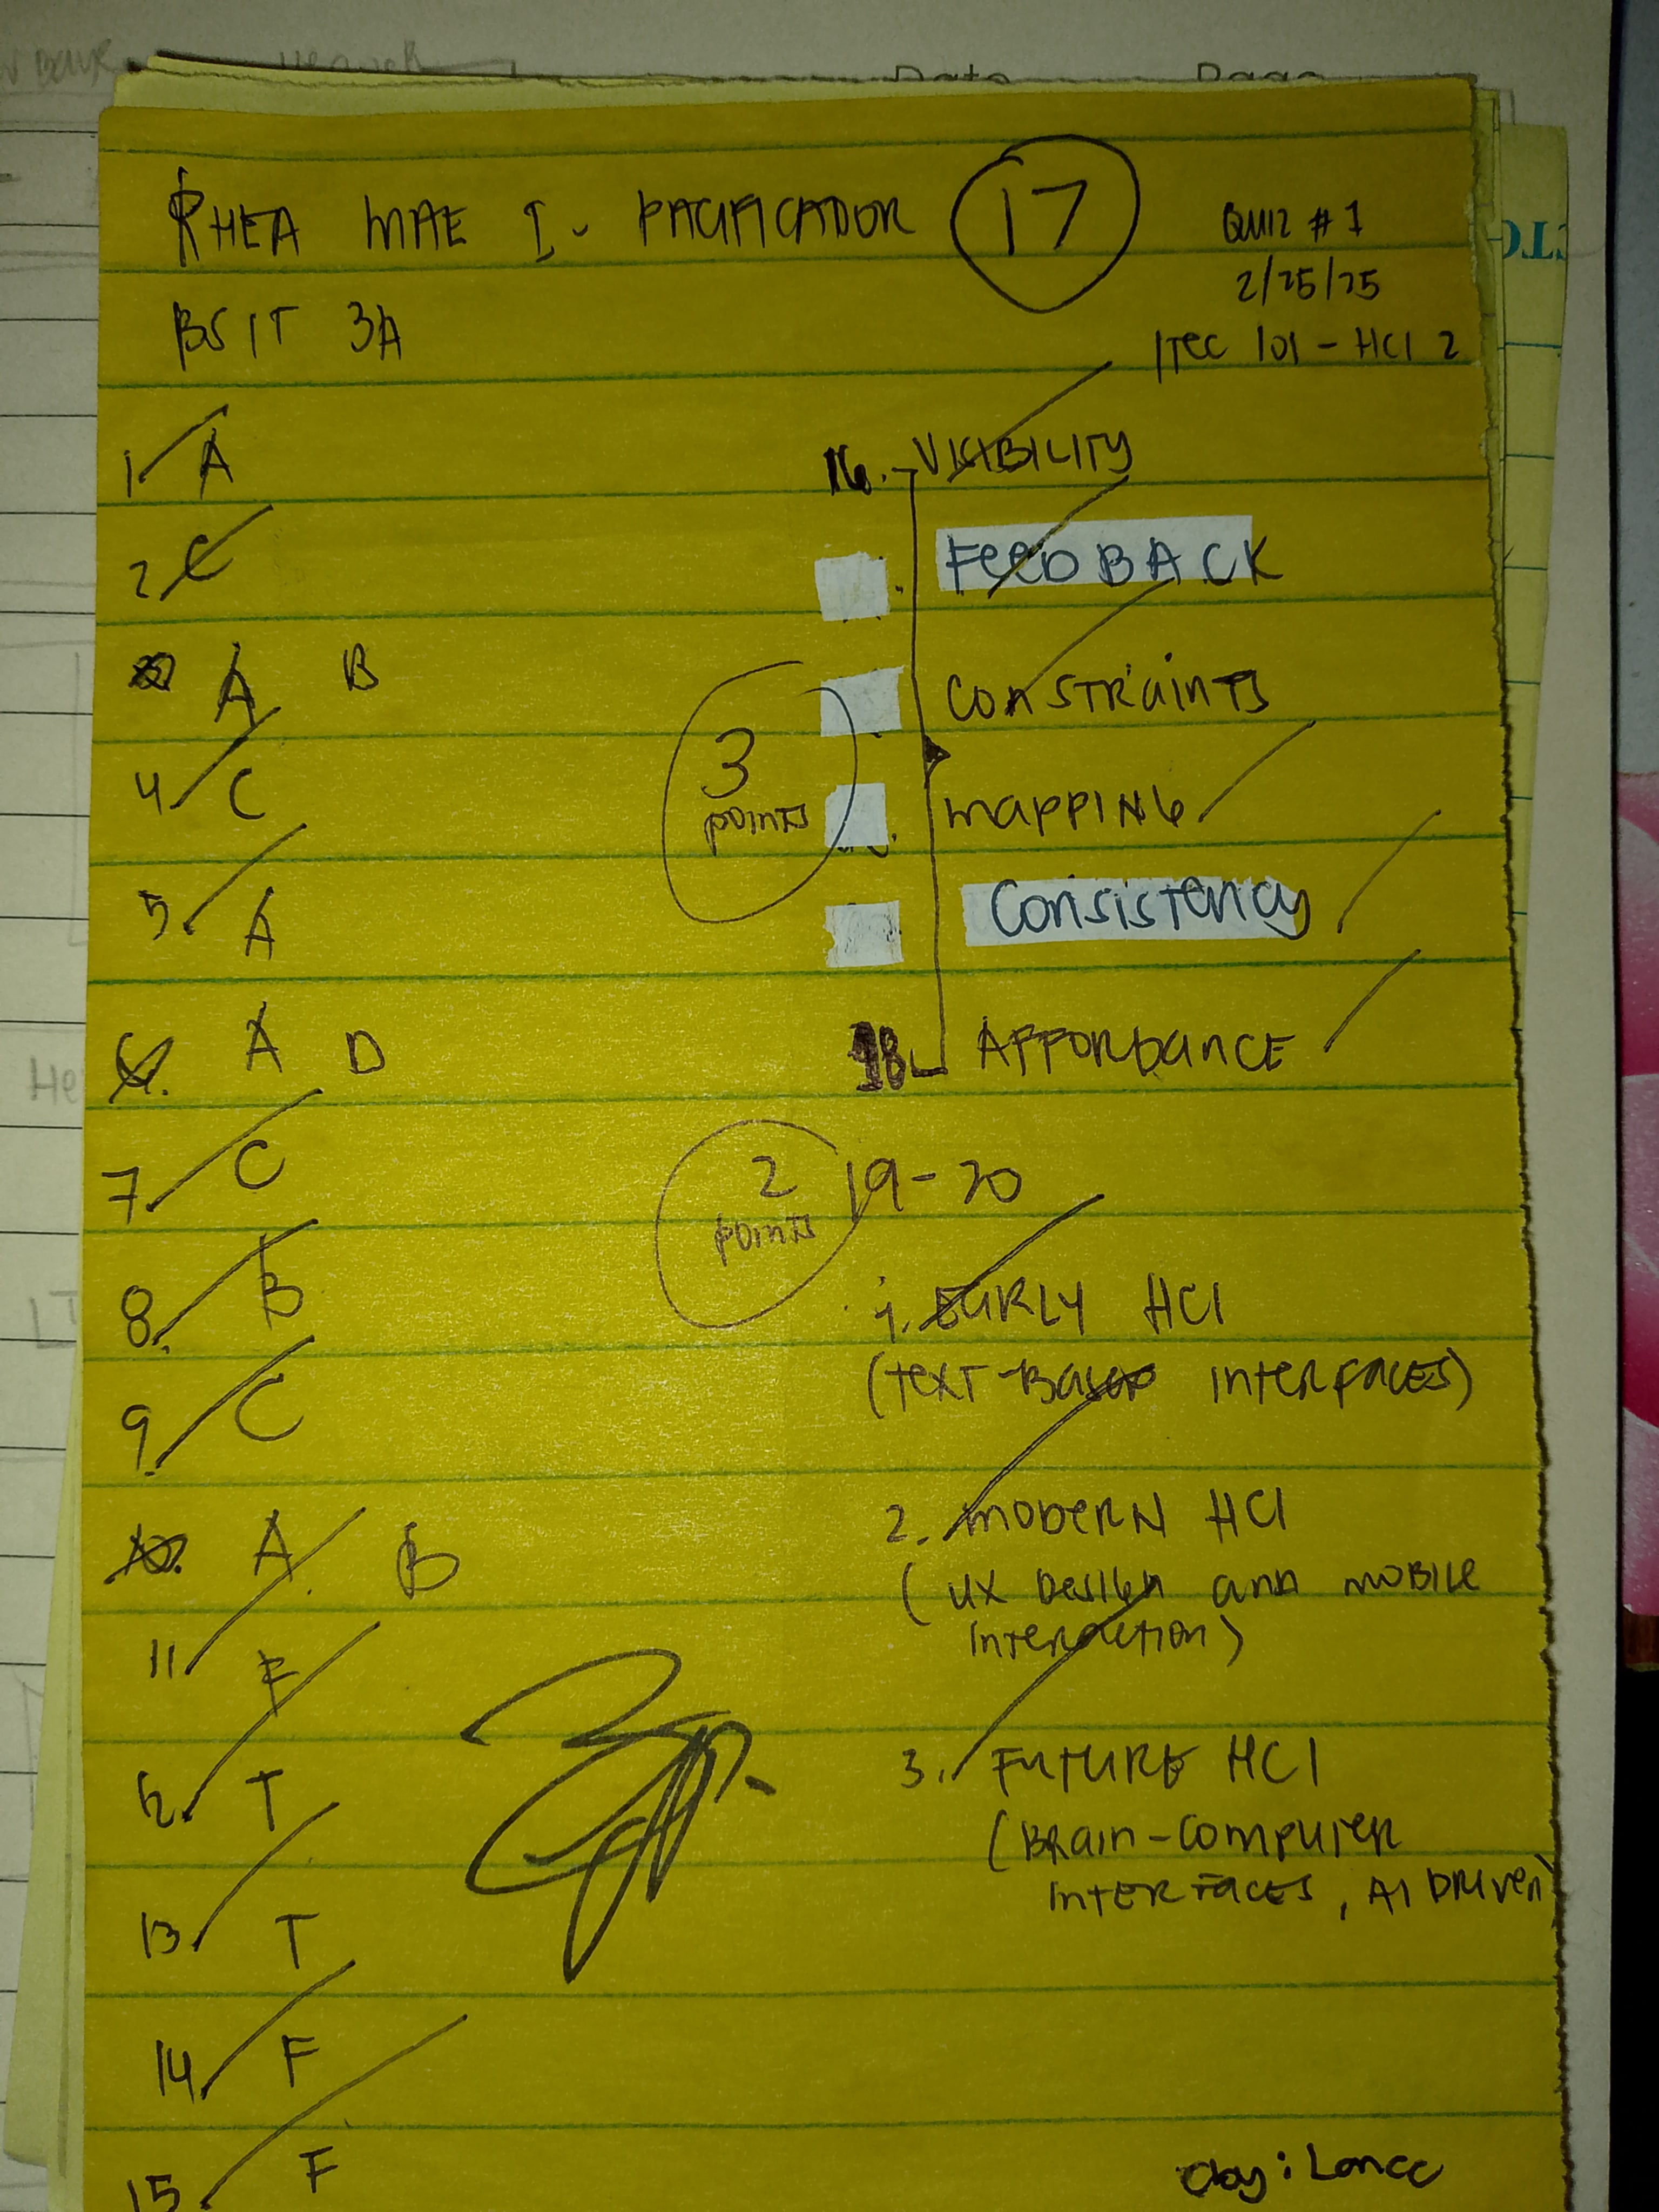 Date Page
RHEA MAE I. PACIFICADOR
17
QUIZ # 1
2/25/25
BSIT 3A
ITEC 101 - HCI 2
1. A
2. C
3. A B
4. C
5. A
6. A D
7. C
8. B
9. C
10. A B
11. F
12. T
13. T
14. F
15. F
16. VISIBILITY
FEEDBACK
CONSTRAINTS
3
points
MAPPING
Consistency
18. AFFORDANCE
2
points
19-20
1. EARLY HCI
(TEXT-BASED INTERFACES)
2. MODERN HCI
(UX DESIGN AND MOBILE
INTERACTION)
3. FUTURE HCI
(BRAIN-COMPUTER
INTERFACES, AI DRIVEN)